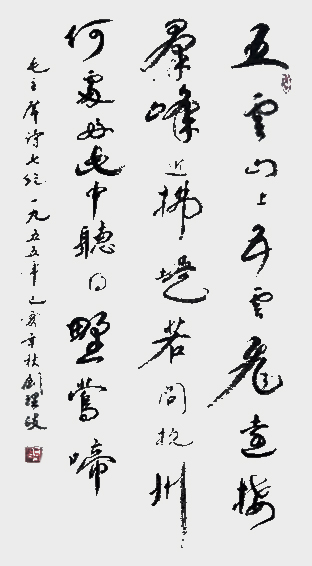 五雲山上五雲飛遠接
羣峰近拂堤若問杭州
何處好此中聽得野鶯啼
毛主席诗七絕一九五五年己亥年秋